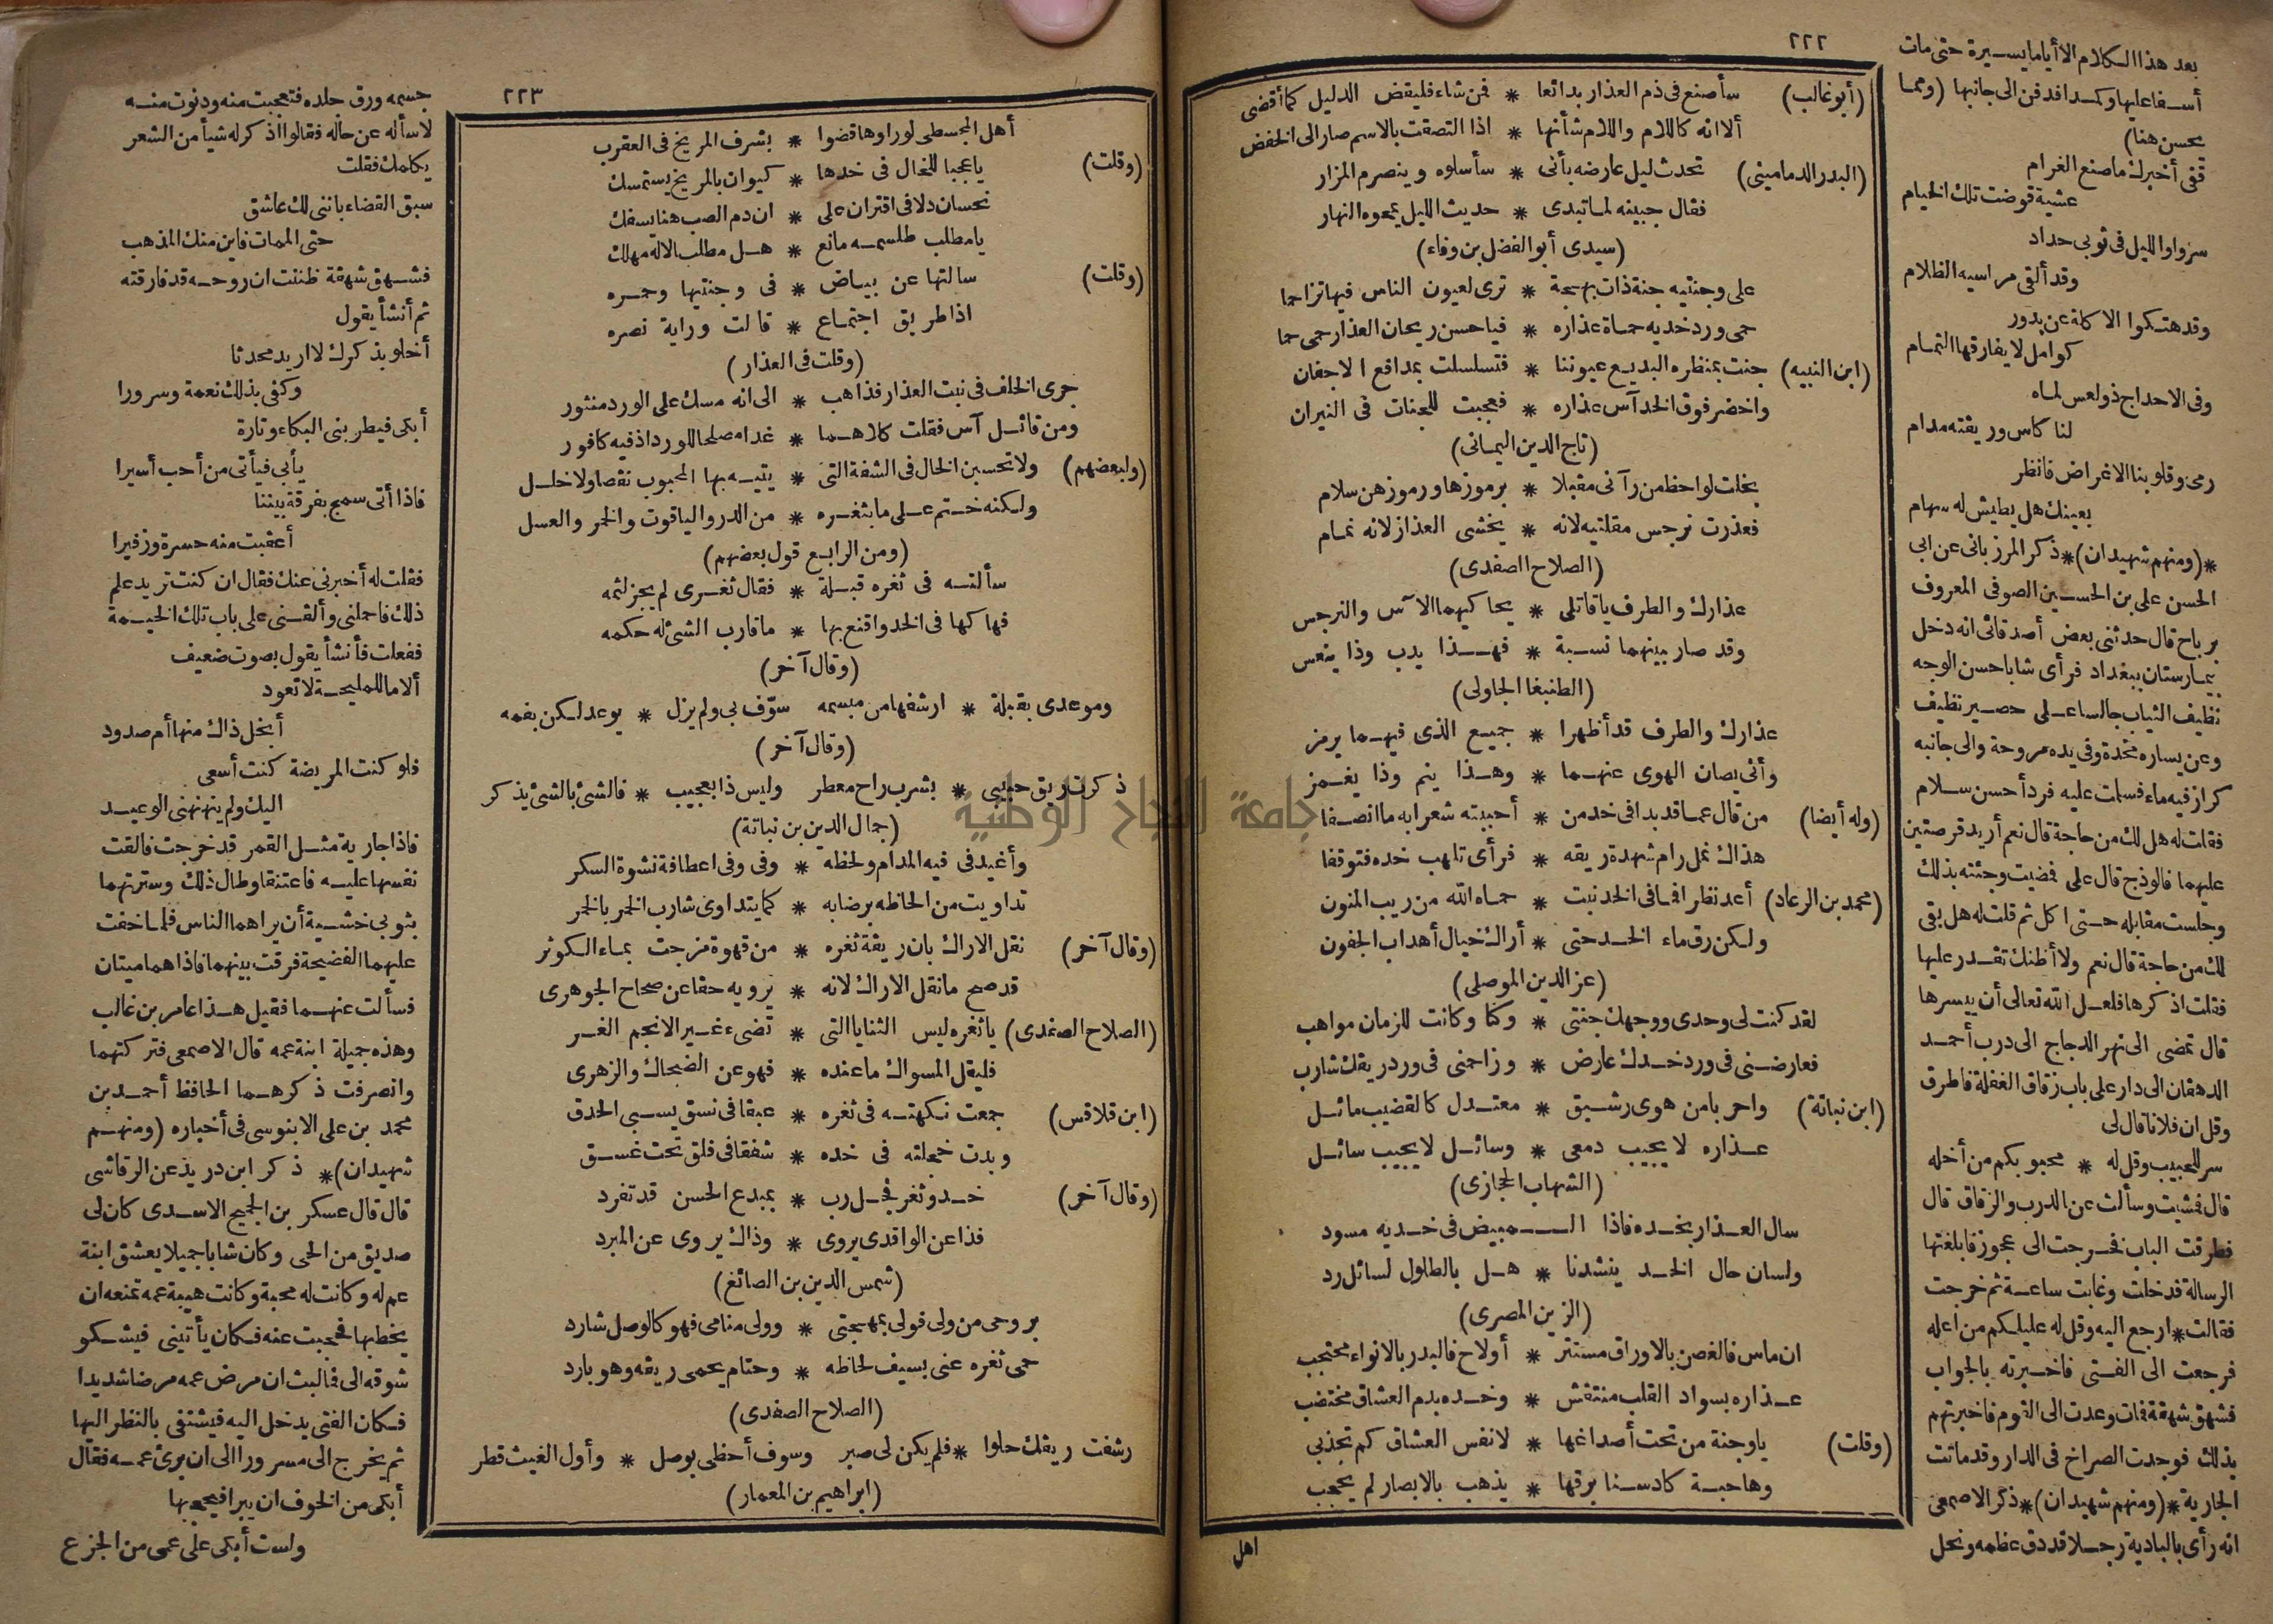 ٢٢٢
(أبو غالب) سأصنع فى ذم العذار بدائعا * فمن شاء فليقض الدليل كما أقضى
ألا انه كاللام واللام شأنها * اذا التصقت بالاسم صار الى الخفض
(البدر الدمامينى) تحدث ليل عارضه بأنى * سأسلوه وينصرم المزار
فقال جبينه لما تبدى * حديث الليل يمحوه النهار
(سيدى أبو الفضل بن وفاء)
على وجنتيه جنة ذات بهجة * ترى لعيون الناس فيها تزاحما
حمى ورد خديه حماة عذاره * فيا حسن ريحان العذار حمى حما
(ابن النبيه) جنت بمنظره البديع عيوننا * فتسلسلت بمدافع الاجفان
واخضر فوق الخد آس عذاره * فعجبت للجنات فى النيران
(تاج الدين اليمانى)
بخلت لواحظ من رآنى مقبلا * برموزها ورموزهن سلام
فعذرت نرجس مقلتيه لانه * يخشى العذار لانه نمام
(الصلاح الصفدى)
عذارك والطرف ياقاتلى * يحاكيهما الآس والنرجس
وقد صار بينهما نسبة * فهذا يدب وذا ينعس
(الطنبغا الجاولى)
عذارك والطرف قد أظهرا * جميع الذى فيهما يرمز
وأنى يصان الهوى عنهما * وهذا ينم وذا يغمز
(وله أيضا) من قال عما قد بدا فى خد من * أحببته شعرا به ما انصفا
هذاك نمل رام شهدة ريقه * فرأى تلهب خده فتوقفا
(محمد بن الرعاد) أعد نظرا فما فى الخد نبت * حماه الله من ريب المنون
ولكن رق ماء الخد حتى * أراك خيال أهداب الجفون
(عز الدين الموصلى)
لقد كنت لى وحدى ووجهك جنتى * وكنا وكانت للزمان مواهب
فعارضنى فى ورد خدك عارض * وزاحمنى فى ورد ريقك شارب
(ابن نباتة) واحربا من هوى رشيق * معتدل كالقضيب مائل
عذاره لا يجيب دمعى * وسائل لا يجيب سائل
(الشهاب الحجازى)
سال العذار بخده فاذا الـمبيض فى خديه مسود
ولسان حال الخد ينشدنا * هل بالطلول لسائل رد
(الزين المصرى)
ان ماس فالغصن بالاوراق مستتر * أو لاح فالبدر بالانواء محتجب
عذاره بسواد القلب منتقش * وخده بدم العشاق مختضب
(وقلت) ياوجنة من تحت أصداغها * لانفس العشاق كم تجذبى
وهاجبة كاد سنا برقها * يذهب بالابصار لم يحجب
اهل
بعد هذا الكلام الا أياما يسيرة حتى مات
أسفا عليها وكمدا فدفن الى جانبها (ومما
يحسن هنا)
قفى أخبرك ما صنع الغرام
عشية قوضت تلك الخيام
سروا والليل فى ثوبى حداد
وقد ألقى مراسيه الظلام
وقد هتكوا الاكلة عن بدور
كوامل لا يفارقها التمام
وفى الاحداج ذو لعس لماه
لنا كاس وريقته مدام
رمى وقلوبنا الاغراض فانظر
بعينك هل يطيش له سهام
*(ومنهم شهيدان)* ذكر المرزبانى عن ابى
الحسن على بن الحسين الصوفى المعروف
برباح قال حدثنى بعض أصدقائى انه دخل
بيمارستان ببغداد فرأى شابا حسن الوجه
نظيف الثياب جالسا على حصير نظيف
وعن يساره مخدة وفى يده مروحة والى جانبه
كراز فيه ماء فسلمت عليه فرد أحسن سلام
فقلت له هل لك من حاجة قال نعم أريد قرصتين
عليهما فالوذج قال على فمضيت وجئته بذلك
وجلست مقابله حتى اكل ثم قلت له هل بقى
لك من حاجة قال نعم ولا أظنك تقدر عليها
فقلت اذكرها فلعل الله تعالى أن ييسرها
قال تمضى الى نهر الدجاج الى درب أحمد
الدهقان الى دار على باب زقاق الغفلة فاطرق
وقل ان فلانا قال لى
سر للحبيب وقل له * محبوبكم من أخله
قال فمشيت وسألت عن الدرب والزقاق قال
فطرقت الباب فخرجت الى عجوز فابلغتها
الرسالة فدخلت وغابت ساعة ثم خرجت
فقالت * ارجع اليه وقل له عليلكم من اعله
فرجعت الى الفتى فاخبرته بالجواب
فشهق شهقة فمات وعدت الى القوم فاخبرتهم
بذلك فوجدت الصراخ فى الدار وقد ماتت
الجارية *(ومنهم شهيدان)* ذكر الاصمعى
انه رأى بالبادية رجلا قد دق عظمه ونحل
٢٢٣
أهل المجسطى لو راوها قضوا * بشرف المريخ فى العقرب
(وقلت) ياعجبا للخال فى خدها * كيوان بالمريخ يستمسك
نحسان دلا فى اقتران على * ان دم الصب هنا يسفك
يامطلب طلسمه مانع * هل مطلب الا له مهلك
(وقلت) سالتها عن بياض * فى وجنتيها وحمره
اذا طريق اجتماع * قالت وراية نصره
(وقلت فى العذار)
جرى الخلف فى نبت العذار فذاهب * الى انه مسك على الورد منثور
ومن قائل آس فقلت كلاهما * غدا مصلحا للورد اذ فيه كافور
(ولبعضهم) ولا تحسبن الخال فى الشفة التى * يتيه بها المحبوب نقصا ولا خلل
ولكنه ختم على ما بثغره * من الدر والياقوت والخمر والعسل
(ومن الرابع قول بعضهم)
سألته فى ثغره قبلة * فقال ثغرى لم يجز لثمه
فهاكها فى الخد واقنع بها * ما قارب الشئ له حكمه
(وقال آخر)
وموعدى بقبلة * ارشفها من مبسمه سوّف بى ولم يزل * يوعد لكن بفمه
(وقال آخر)
ذكرت ريق حبيبى * بشرب راح معطر وليس ذا بعجيب * فالشئ بالشئ يذكر
(جمال الدين بن نباتة)
وأغيد فى فيه المدام ولحظه * وفى وفى اعطافة نشوة السكر
تداويت من الحاظه برضابه * كما يتداوى شارب الخمر بالخمر
(وقال آخر) نقل الاراك بان ريقة ثغره * من قهوة مزجت بماء الكوثر
قد صح ما نقل الاراك لانه * يرويه حقا عن صحاح الجوهرى
(الصلاح الصفدى) ياثغره ليس الثنايا التى * تضىء غير الانجم الغر
فليقل المسواك ما عنده * فهو عن الضحاك والزهرى
(ابن قلاقس) جمعت نكهته فى ثغره * عبقا فى نسق يسبى الحدق
وبدت خجلته فى خده * شفقا فى فلق تحت غسق
(وقال آخر) خد وثغر فجل رب * بمبدع الحسن قد تفرد
فذا عن الواقدى يروى * وذاك يروى عن المبرد
(شمس الدين بن الصائغ)
بروحى من ولى فولى بمهجتى * وولى منامى فهو كالوصل شارد
حمى ثغره عنى بسيف لحاظه * وحتام يحمى ريقه وهو بارد
(الصلاح الصفدى)
رشفت ريقك حلوا * فلم يكن لى صبر وسوف أحظى بوصل * وأول الغيث قطر
(ابراهيم بن المعمار)
جسمه ورق جلده فتعجبت منه ودنوت منه
لاسأله عن حاله فقالوا اذكر له شيأ من الشعر
يكلمك فقلت
سبق القضاء باننى لك عاشق
حتى الممات فاين منك المذهب
فشهق شهقة ظننت ان روحه قد فارقته
ثم أنشأ يقول
أخلو بذكرك لا اريد محدثا
وكفى بذلك نعمة وسرورا
أبكى فيطربنى البكاء وتارة
يأبى فيأتى من أحب أسيرا
فاذا أتى سمج بفرقة بيننا
أعقبت منه حسرة وزفيرا
فقلت له أخبرنى عنك فقال ان كنت تريد علم
ذلك فاحملنى وألقنى على باب تلك الخيمة
ففعلت فأنشأ يقول بصوت ضعيف
ألا ما للمليحة لا تعود
أبخل ذاك منها أم صدود
فلو كنت المريضة كنت أسعى
اليك ولم ينهنهنى الوعيد
فاذا جارية مثل القمر قد خرجت فالقت
نفسها عليه فاعتنقا وطال ذلك وسترتهما
بثوبى خشية أن يراهما الناس فلما خفت
عليهما الفضيحة فرقت بينهما فاذا هما ميتان
فسألت عنهما فقيل هذا عامر بن غالب
وهذه جميلة ابنة عمه قال الاصمعى فتركتهما
وانصرفت ذكرهما الحافظ أحمد بن
محمد بن على الابنوسى فى أخباره (ومنهم
شهيدان)* ذكر ابن دريد عن الرقاشى
قال قال عسكر بن الجميح الاسدى كان لى
صديق من الحى وكان شابا جميلا يعشق ابنة
عم له وكانت له محبة وكانت هيبة عمه تمنعه ان
يخطبها فحجبت عنه فكان يأتينى فيشكو
شوقه الى فما لبث ان مرض عمه مرضا شديدا
فكان الفتى يدخل اليه فيشتفى بالنظر اليها
ثم يخرج الى مسرورا الى ان برئ عمه فقال
أبكى من الخوف ان يبرا فيحجبها
ولست أبكى على عمى من الجزع
جامعة النجاح الوطنية